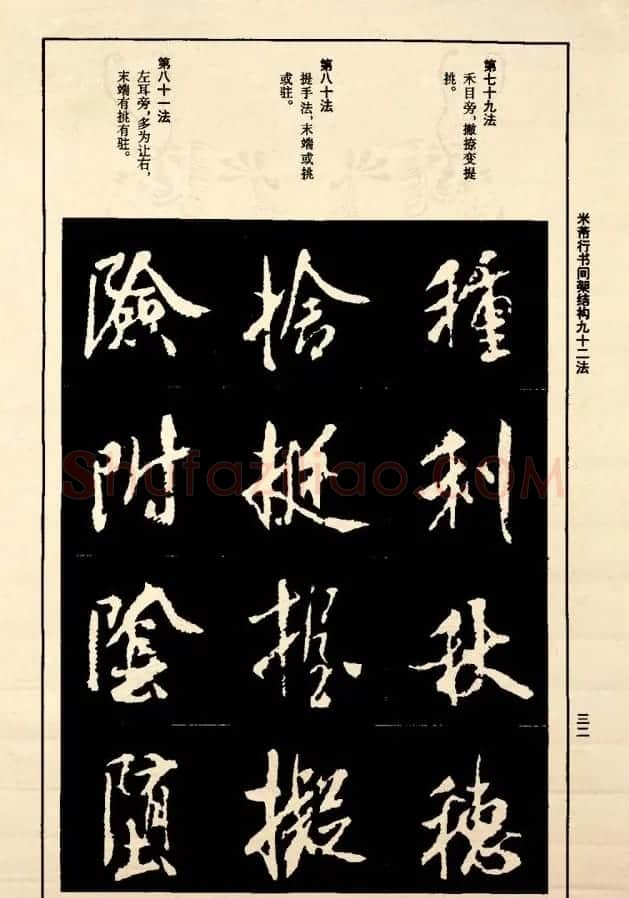 米芾行书间架结构九十二法
三二
第七十九法
禾目旁，撇捺变提
挑。
種
利
秋
穗
第八十法
提手法，末端或挑
或驻。
捨
挺
握
擬
第八十一法
左耳旁，多为让右，
末端有挑有驻。
險
附
陰
堕
Shufaziliao.COM